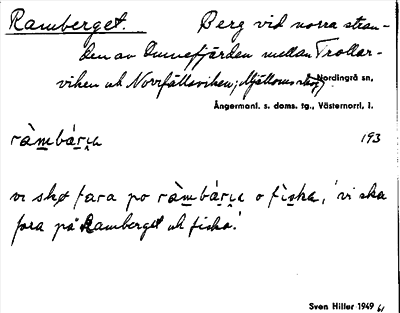 Ramberget. Berg vid norra stran-
den av Omnefjärden mellan Trollar-
viken och Norrfällsviken; Mjälloms skog Nordingrå sn,
Ångermanl. s. doms. tg., Västernorrl. l.
ràm̲bár̲i̲a 193
vi skø fara po ràm̲bár̲i̲a o fìs̲ka, 'vi ska
fara på Ramberget och fiska.'
Sven Hiller 1949